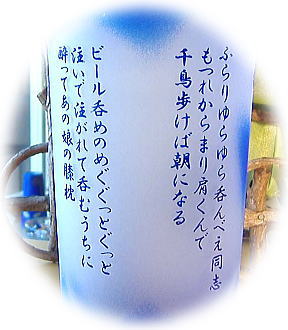 ふらりゆらゆら呑んべえ同志
もつれからまり肩くんで
千鳥歩けば朝になる
ビール呑めのめぐぐっとぐっと
注いで注がれて呑むうちに
酔ってあの娘の膝枕